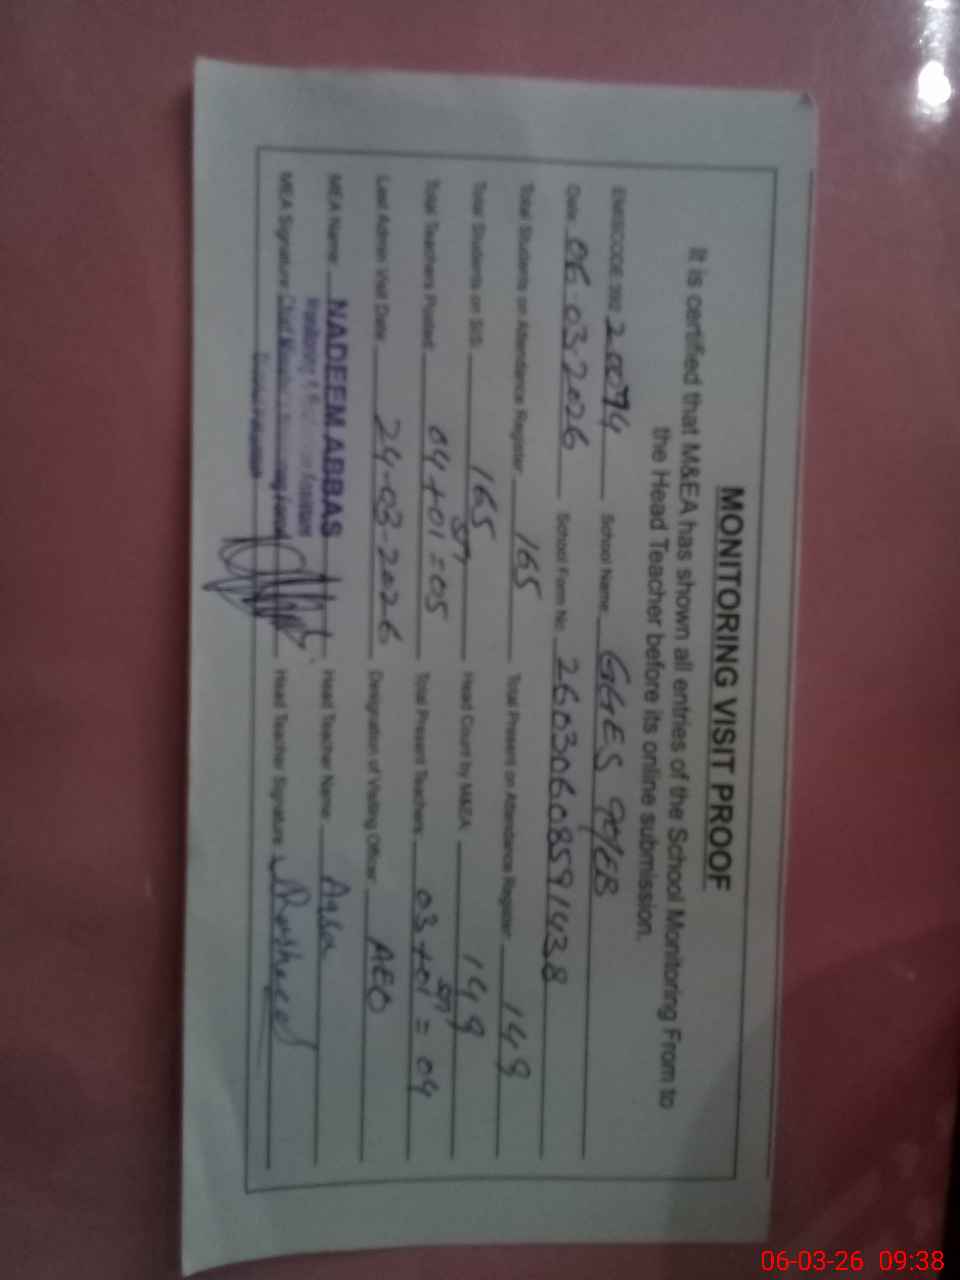 MONITORING VISIT PROOF
It is certified that M&EA has shown all entries of the School Monitoring From to
the Head Teacher before its online submission.
EMISCODE 392 20074 School Name GGES 90/EB
Date 06-03-2026 School Form No. 26030608591438
Total Students on Attendance Register 165 Total Present on Attendance Register 149
Total Students on SIS 165 Head Count by M&EA 149
Total Teachers Posted 04+01=05 Total Present Teachers 03+01=04
Last Admin Visit Date 24-03-2026 Designation of Visiting Officer AEO
MEA Name NADEEM ABBAS Head Teacher Name
MEA Signature Head Teacher Signature
06-03-26 09:38